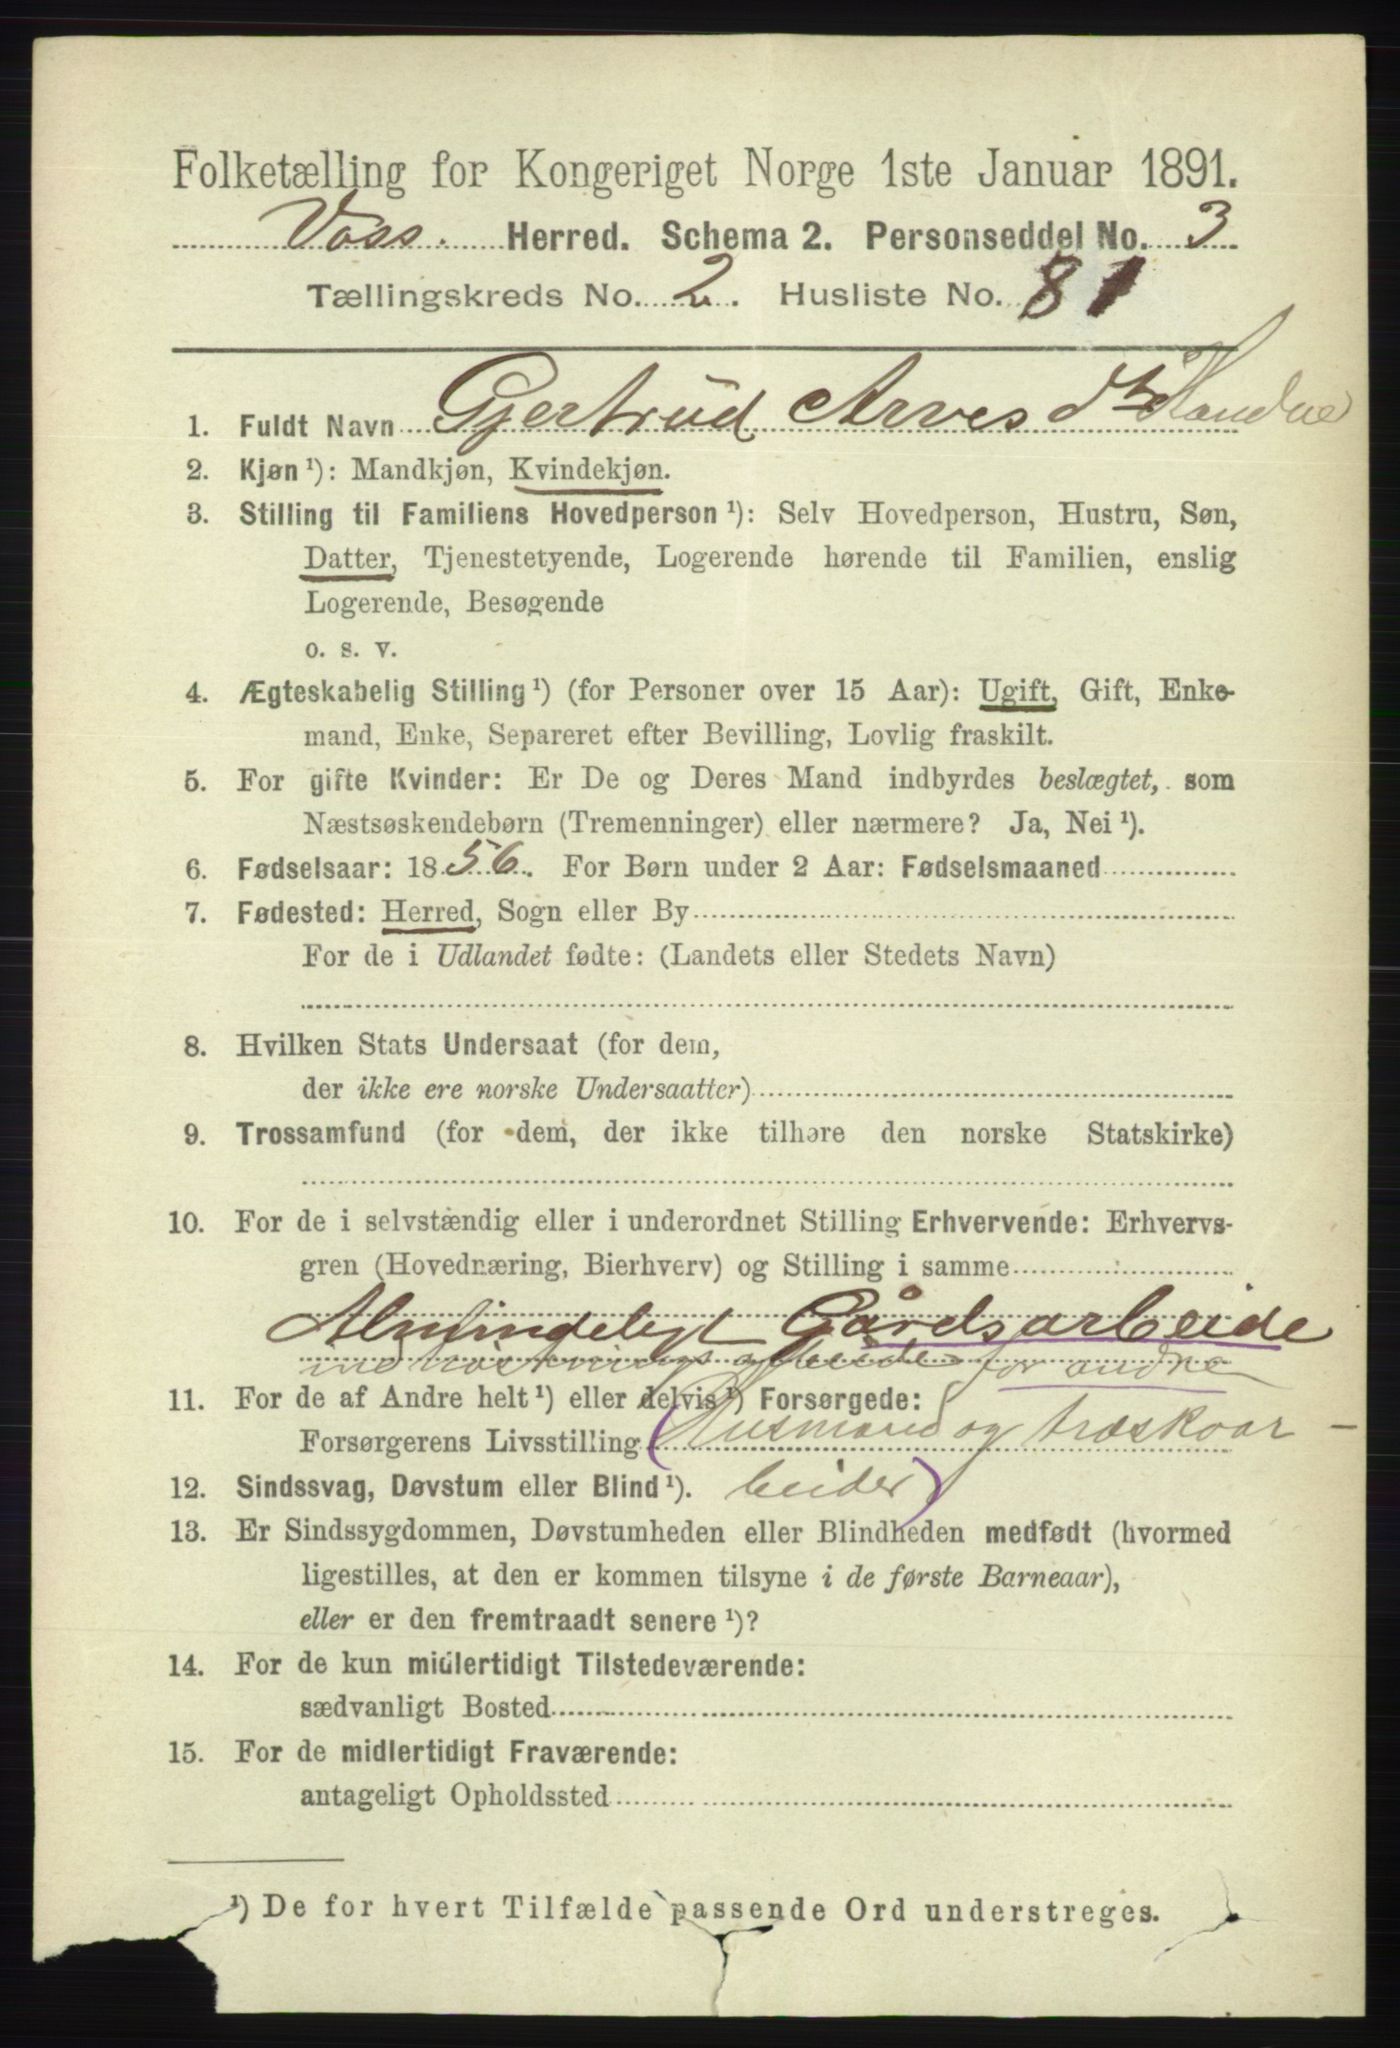 Folketælling for Kongeriget Norge 1ste Januar 1891.
Voss. Herred. Schema 2. Personseddel No. 3
Tællingskreds No. 2. Husliste No. 81
1. Fuldt Navn Gjertrüd Arvesdtr
2. Kjøn ¹): Mandkjøn, Kvindekjøn.
3. Stilling til Familiens Hovedperson ¹): Selv Hovedperson, Hustru, Søn,
Datter, Tjenestetyende, Logerende hørende til Familien, enslig
Logerende, Besøgende
o. s. v.
4. Ægteskabelig Stilling ¹) (for Personer over 15 Aar): Ugift, Gift, Enke-
mand, Enke, Separeret efter Bevilling, Lovlig fraskilt.
5. For gifte Kvinder: Er De og Deres Mand indbyrdes beslægtet, som
Næstsøskendebørn (Tremenninger) eller nærmere? Ja, Nei ¹).
6. Fødselsaar: 1856. For Børn under 2 Aar: Fødselsmaaned
7. Fødested: Herred, Sogn eller By
For de i Udlandet fødte: (Landets eller Stedets Navn)
8. Hvilken Stats Undersaat (for dem,
der ikke ere norske Undersaatter)
9. Trossamfund (for dem, der ikke tilhøre den norske Statskirke)
10. For de i selvstændig eller i underordnet Stilling Erhvervende: Erhvervs-
gren (Hovednæring, Bierhverv) og Stilling i samme
Almindeligt Gårdsarbeide
for andre
11. For de af Andre helt ¹) eller delvis ¹) Forsørgede:
Forsørgerens Livsstilling (Husmand og træskoar-
12. Sindssvag, Døvstum eller Blind ¹). beider)
13. Er Sindssygdommen, Døvstumheden eller Blindheden medfødt (hvormed
ligestilles, at den er kommen tilsyne i de første Barneaar),
eller er den fremtraadt senere ¹)?
14. For de kun midlertidigt Tilstedeværende:
sædvanligt Bosted
15. For de midlertidigt Fraværende:
antageligt Opholdssted
¹) De for hvert Tilfælde passende Ord understreges.